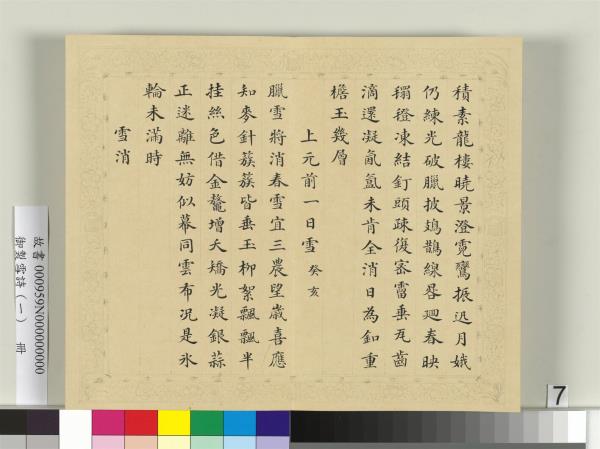 積素龍樓曉景澄霓鸞振迅月娥
仍練光破臘披鳷鵲線晷廻春映
磴凍結釘頭疎復密霤垂瓦齒
滴還凝氤氳未肯全消日為釦重
檐玉幾層
上元前一日雪 癸亥
臘雪將消春雪宜三農望歲喜應
知麥針簇簇皆垂玉柳絮飄飄半
挂絲色借金鼇增夭矯光凝銀蒜
正迷離無妨似幕同雲布况是氷
輪未滿時
雪消
故書 000959N000000000
御製雪詩(一) 冊
7